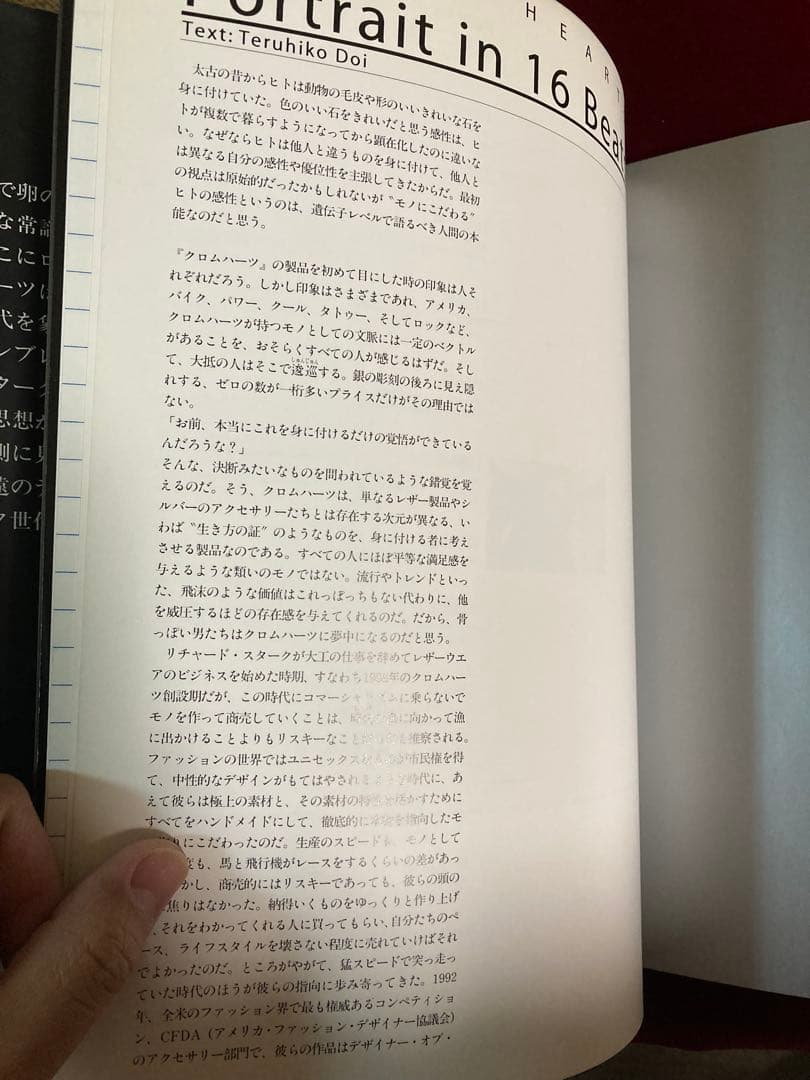 HEART
Portrait in 16 Beat
Text: Teruhiko Doi
太古の昔からヒトは動物の毛皮や形のいいきれいな石を
身に付けていた。色のいい石をきれいだと思う感性は、ヒ
トが複数で暮らすようになってから顕在化したのに違いな
い。なぜならヒトは他人と違うものを身に付けて、他人と
は異なる自分の感性や優位性を主張してきたからだ。最初
の視点は原始的だったかもしれないが〝モノにこだわる〟
ヒトの感性というのは、遺伝子レベルで語るべき人間の本
能なのだと思う。
『クロムハーツ』の製品を初めて目にした時の印象は人そ
れぞれだろう。しかし印象はさまざまであれ、アメリカ、
バイク、パワー、クール、タトゥー、そしてロックなど、
クロムハーツが持つモノとしての文脈には一定のベクトル
があることを、おそらくすべての人が感じるはずだ。そし
て、大抵の人はそこで逡巡する。銀の彫刻の後ろに見え隠
しゅんじゅん
れする、ゼロの数が一桁多いプライスだけがその理由では
ない。
「お前、本当にこれを身に付けるだけの覚悟ができている
んだろうな?」
そんな、決断みたいなものを問われているような錯覚を覚
えるのだ。そう、クロムハーツは、単なるレザー製品やシ
ルバーのアクセサリーたちとは存在する次元が異なる、い
わば〝生き方の証〟のようなものを、身に付ける者に考え
させる製品なのである。すべての人にほぼ平等な満足感を
与えるような類いのモノではない。流行やトレンドといっ
た、飛沫のような価値はこれっぽっちもない代わりに、他
を威圧するほどの存在感を与えてくれるのだ。だから、骨
っぽい男たちはクロムハーツに夢中になるのだと思う。
リチャード・スタークが大工の仕事を辞めてレザーウエ
アのビジネスを始めた時期、すなわち1988年のクロムハー
ツ創設期だが、この時代にコマーシャリズムに乗らないで
モノを作って商売していくことは、に向かって漁
に出かけることよりもリスキーなことと推察される。
ファッションの世界ではユニセックスが市民権を得
て、中性的なデザインがもてはやされる時代に、あ
えて彼らは極上の素材と、その素材の特性を活かすために
すべてをハンドメイドにして、徹底的に指向したモ
りにこだわったのだ。生産のスピードも、モノとして
度も、馬と飛行機がレースをするくらいの差があっ
かし、商売的にはリスキーであっても、彼らの頭の
焦りはなかった。納得いくものをゆっくりと作り上げ
、それをわかってくれる人に買ってもらい、自分たちのペ
ース、ライフスタイルを壊さない程度に売れていけばそれ
でよかったのだ。ところがやがて、猛スピードで突っ走っ
ていた時代のほうが彼らの指向に歩み寄ってきた。1992
年、全米のファッション界で最も権威あるコンペティショ
ン、CFDA（アメリカ・ファッション・デザイナー協議会）
のアクセサリー部門で、彼らの作品はデザイナー・オブ・
で卵の
な常識
こにロ
ーツに
代を象
ンブレ
ターク
思想が
則に見
遠のテ
ク世代